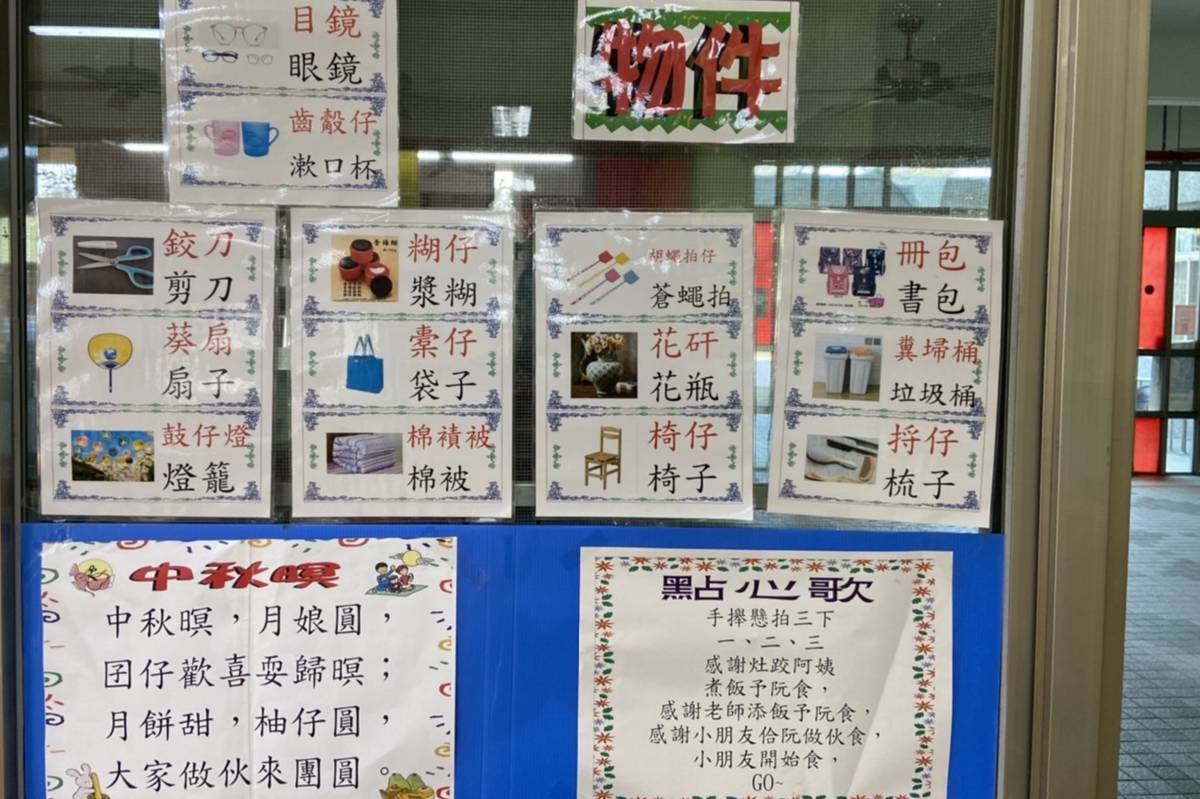 物件
目鏡
眼鏡
齒觳仔
漱口杯
鉸刀
剪刀
葵扇
扇子
鼓仔燈
燈籠
糊仔
漿糊
橐仔
袋子
棉襀被
棉被
胡蠅拍仔
蒼蠅拍
花矸
花瓶
椅仔
椅子
冊包
書包
糞埽桶
垃圾桶
捋仔
梳子
中秋暝
中秋暝，月娘圓，
囝仔歡喜耍歸暝；
月餅甜，柚仔圓，
大家做伙來團圓
點心歌
手攑懸拍三下
一、二、三
感謝灶跤阿姨
煮飯予阮食，
感謝老師添飯予阮食，
感謝小朋友佮阮做伙食，
小朋友開始食，
GO~